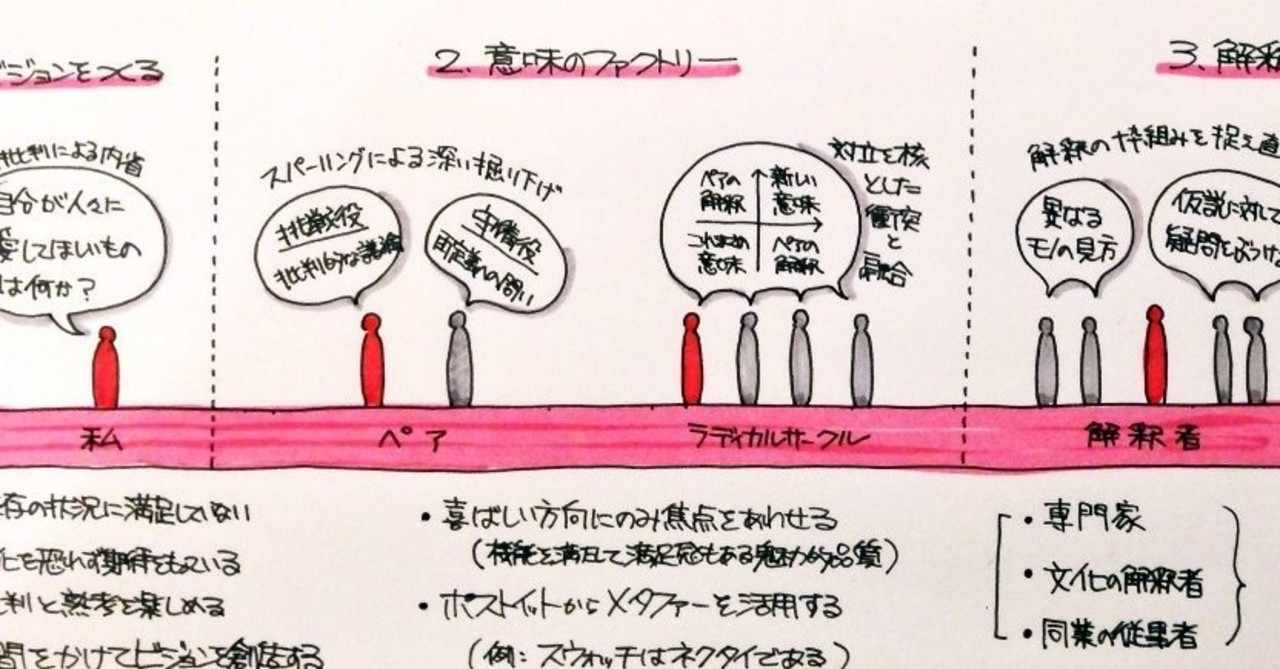 ビジョンをつくる
批判による内省
自分が人々に
愛してほしいもの
は何か？
私
存の状況に満足していない
化を恐れず期待をもっている
判と熟考を楽しめる
間をかけてビジョンを創造する
2. 意味のファクトリー
スパーリングによる深い掘り下げ
挑戦役
批判的な議論
守備役
肯定義への問い
ペア
対立を核
とした
衝突
と
融合
ペアの
解釈
新しい
意味
これまでの
意味
ペアの
解釈
ラディカルサークル
・喜ばしい方向にのみ焦点をあわせる
(機能を満足して満足感もある魅力的品質)
・ポストイットからメタファーを活用する
(例: スウォッチはネクタイである)
3. 解釈
解釈の枠組みを捉え直
異なる
モノの見方
仮説に対して
疑問をぶつける
解釈者
・専門家
・文化の解釈者
・同業の従業者